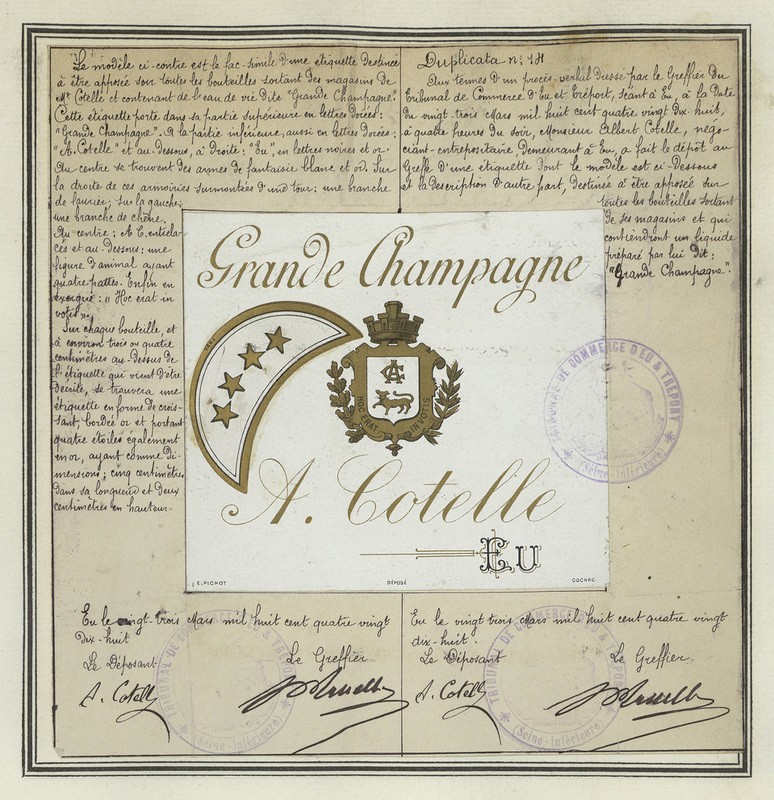 Le modèle ci-contre est le fac-simile d'une étiquette destinée
à être apposée sur toutes les bouteilles sortant des magasins de
Mr. Cotelle et contenant de l'eau de vie dite "Grande Champagne".
Cette étiquette porte dans sa partie supérieure en lettres dorées:
"Grande Champagne". A la partie inférieure, aussi en lettres dorées:
"A. Cotelle" et au-dessous, à droite: "Eu", en lettres noires et or.
Au centre se trouvent des armes de fantaisie blanc et or. Sur
la droite de ces armoiries surmontées d'une tour: une branche
de laurier; sur la gauche;
une branche de chêne.
Au centre; A C. entrela-
cés et au-dessous: une
figure d'animal ayant
quatre pattes. Enfin en
exergue: "Hoc erat in
votis".
Sur chaque bouteille, et
à environ trois ou quatre
centimètres au-dessus de
l'étiquette qui vient d'être
décrite, se trouvera une
étiquette en forme de crois-
sant, bordée or et portant
quatre étoiles également
en or, ayant comme di-
mensions; cinq centimètres
dans sa longueur et deux
centimètres en hauteur.
Duplicata n°. 181
Aux termes d'un procès-verbal dressé par le Greffier du
Tribunal de Commerce d'Eu et Tréport, séant à Eu, à la date
du vingt trois Mars mil huit cent quatre vingt dix-huit,
à quatre heures du soir, Monsieur Albert Cotelle, négo-
ciant-entrepositaire demeurant à Eu, a fait le dépôt au
Greffe d'une étiquette dont le modèle est ci-dessous
et la description d'autre part, destinée à être apposée sur
toutes les bouteilles sortant
de ses magasins et qui
contiendront un liquide
préparé par lui dit:
"Grande Champagne".
Grande Champagne
HOC ERAT IN VOTIS
A. Cotelle
Eu
E. PICHOT
DÉPOSÉ
COGNAC
TRIBUNAL DE COMMERCE D'EU & TRÉPORT
(Seine-Inférieure)
Eu le vingt-trois Mars mil huit cent quatre vingt
dix-huit
Le Déposant
Le Greffier
A. Cotelle
Eu le vingt trois Mars mil huit cent quatre vingt
dix-huit.
Le Déposant
Le Greffier.
A. Cotelle
TRIBUNAL DE COMMERCE D'EU & TRÉPORT
(Seine-Inférieure)
TRIBUNAL DE COMMERCE D'EU & TRÉPORT
(Seine-Inférieure)